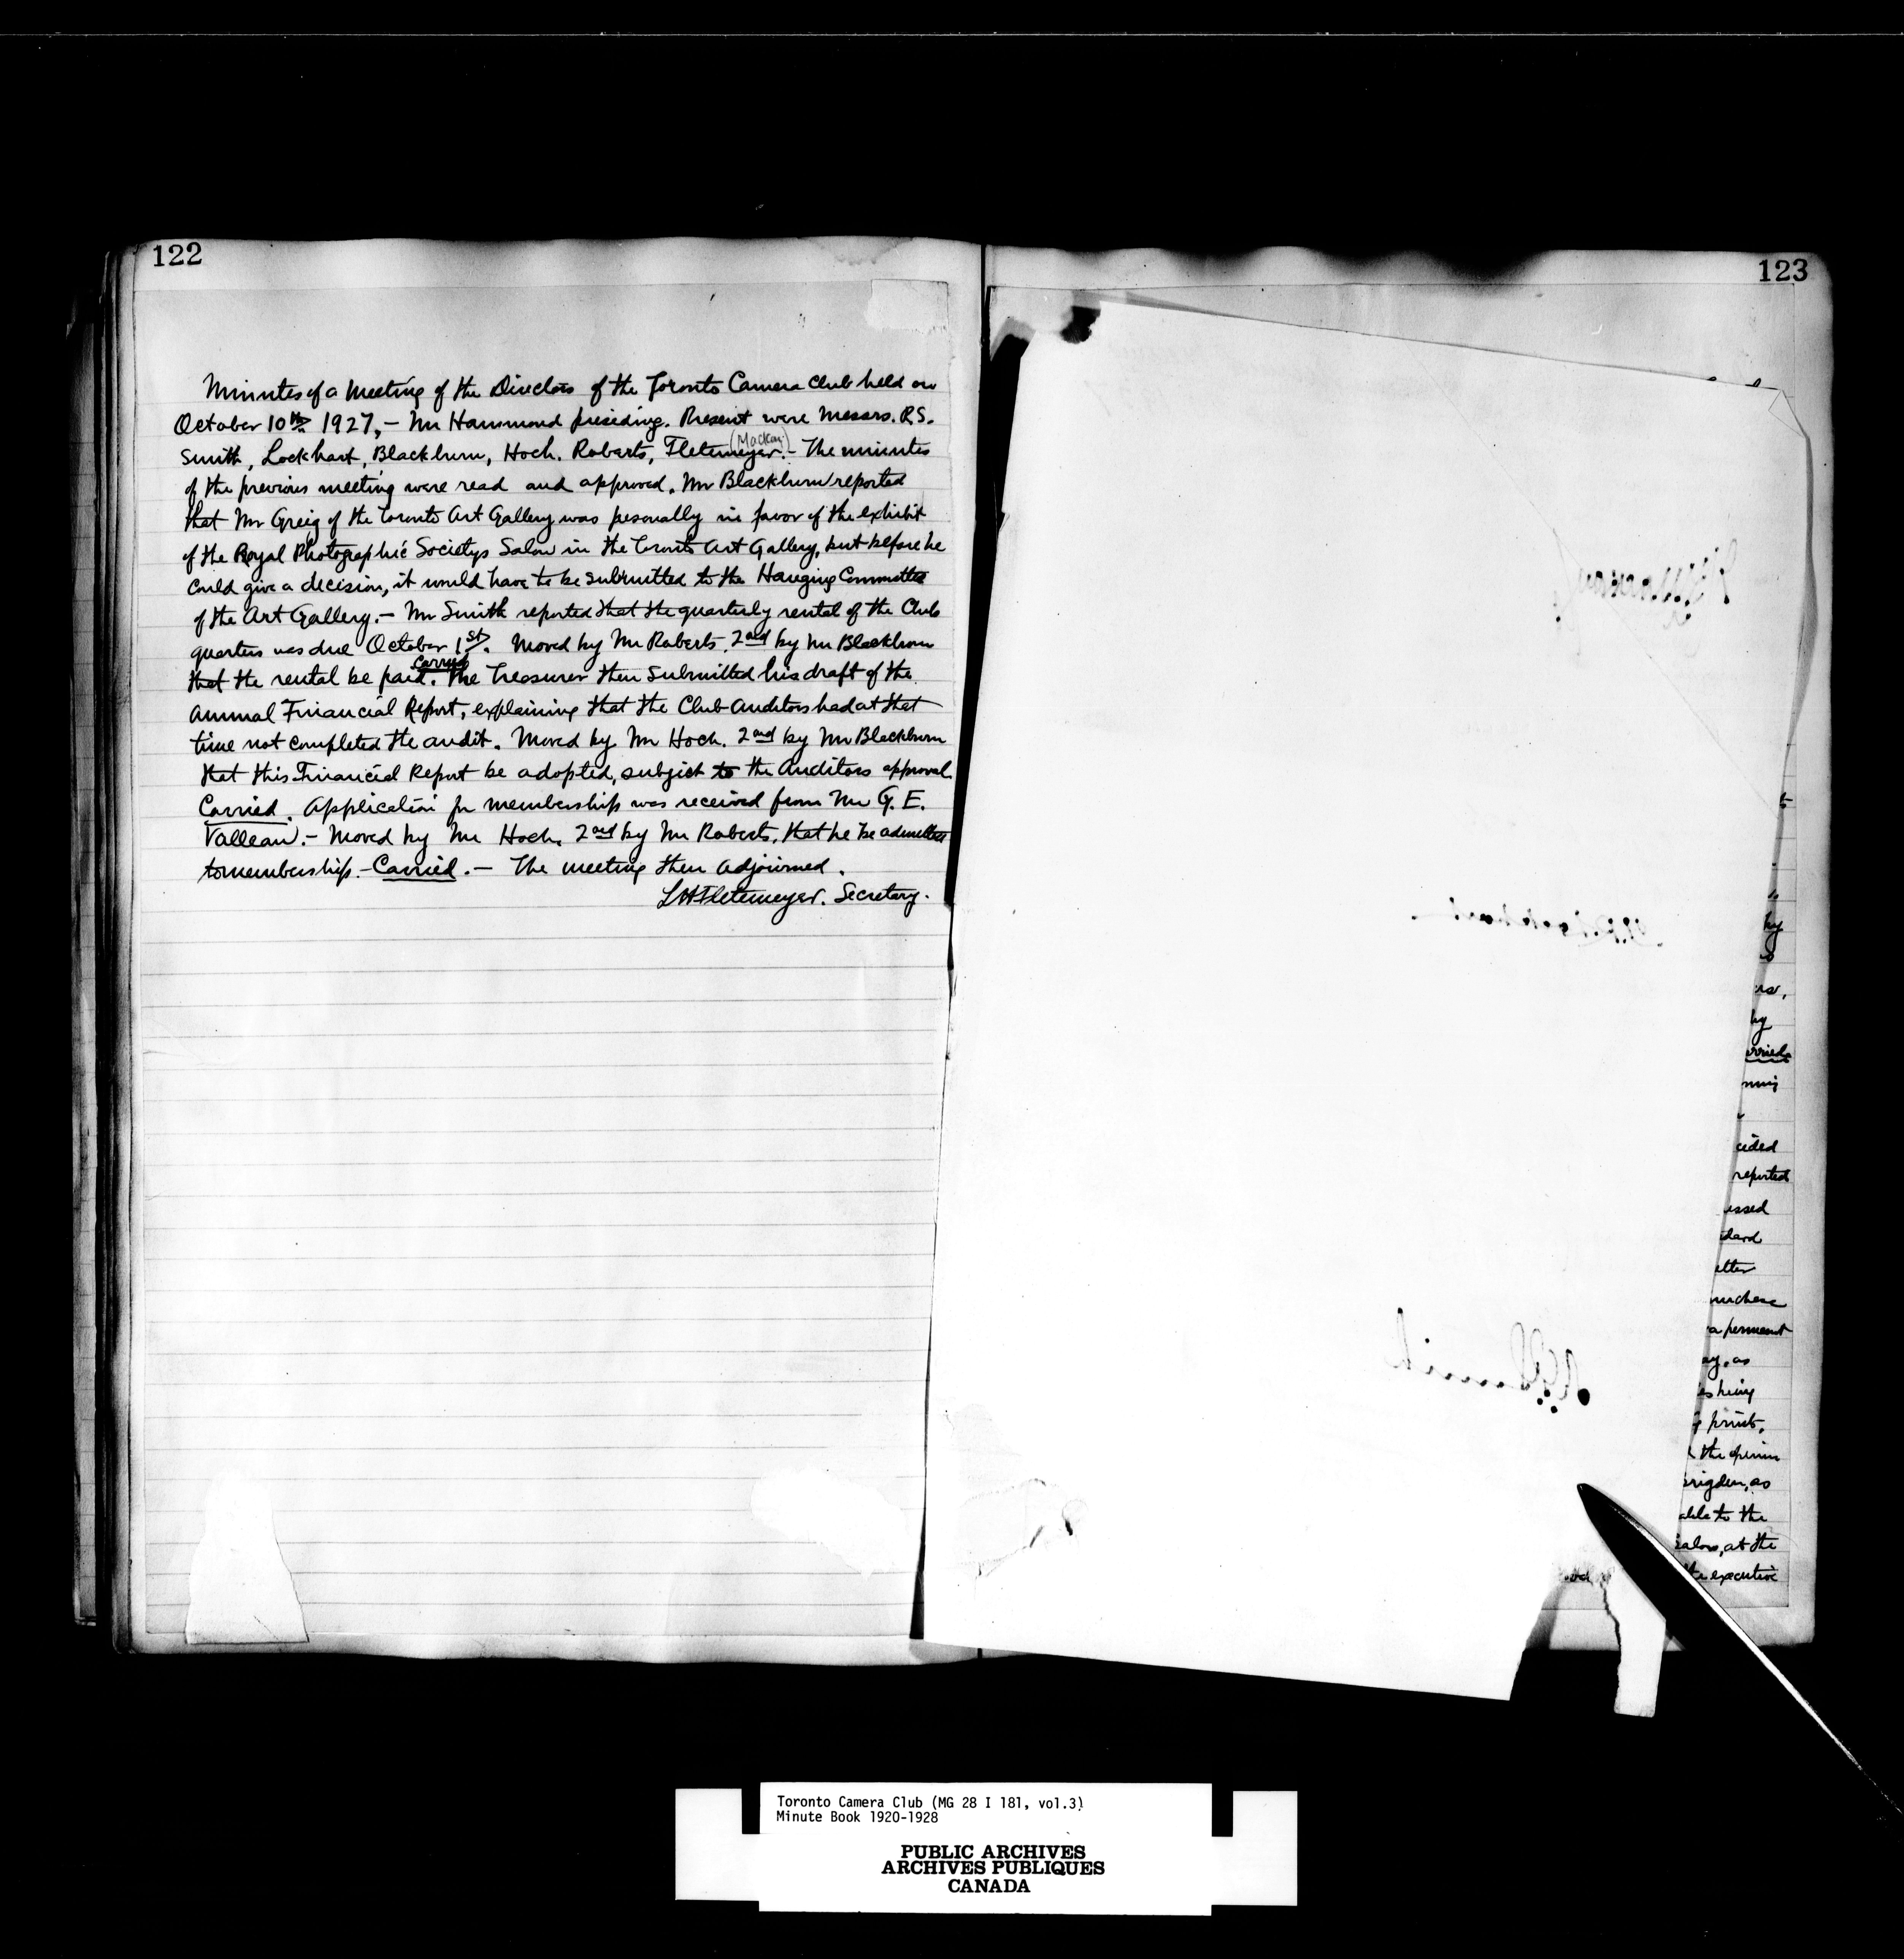 122
Minutes of a Meeting of the Directors of the Toronto Camera Club held on
October 10th 1927, – Mr Hammond presiding. Present were Messrs. R.S.
Smith, Lockhart, Blackburn, Hoch. Roberts, Fletemeyer. (Mackay) – The minutes
of the previous meeting were read and approved. Mr Blackburn reported
that Mr Greig of the Toronto Art Gallery was pesonally in favor of the exhibit
of the Royal Photographic Societys Salon in the Toronto Art Gallery, but before he
could give a decision, it would have to be submitted to the Hanging Committee
of the Art Gallery. – Mr Smith reported that the quarterly rental of the Club
quarters was due October 1st. Moved by Mr Roberts. 2nd by Mr Blackburn
that the rental be paid. Carried The Treasurer then submitted his draft of the
Annual Financial Report, explaining that the Club Auditors had at that
time not completed the audit. Moved by Mr Hoch. 2nd by Mr Blackburn
that this Financial Report be adopted, subject to the Auditors approval.
Carried. Application for membership was received from Mr G. E.
Valleau. – Moved by Mr Hoch. 2nd by Mr Roberts. that he be admitted
to membership. – Carried. – The meeting then adjourned.
L H Fletemeyer. Secretary.
123
by
by
arried
cided
reported
essed
dard
etter
purchase
a permanent
ay, as
es being
prints,
the opinion
Brigden, as
able to the
Salon, at the
the executive
Toronto Camera Club (MG 28 I 181, vol.3)
Minute Book 1920-1928
PUBLIC ARCHIVES
ARCHIVES PUBLIQUES
CANADA